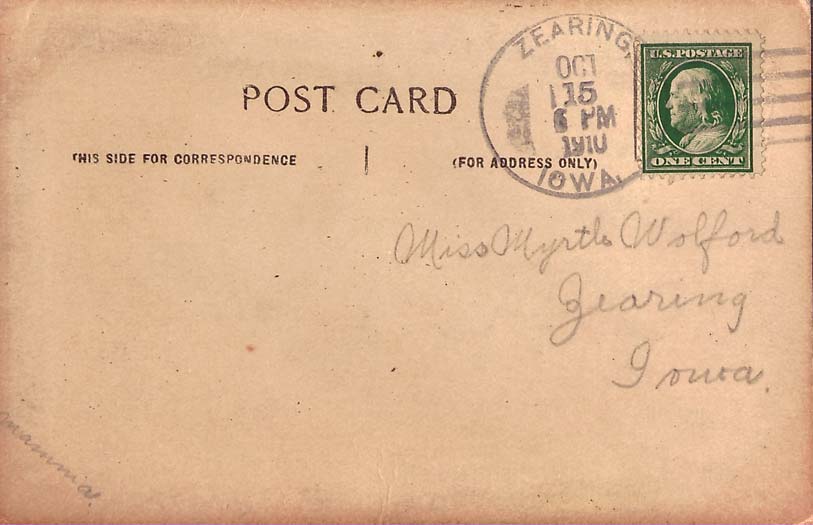 ZEARING,
OCT
15
6 PM
1910
IOWA.
U.S. POSTAGE
ONE CENT
POST CARD
THIS SIDE FOR CORRESPONDENCE
(FOR ADDRESS ONLY)
Miss Myrtle Wolford
Zearing
Iowa.
mamma.